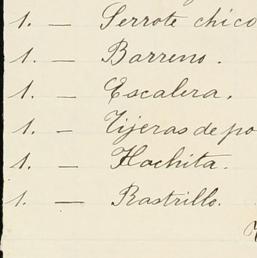 1. — Serrote chico
1. — Barreno.
1. — Escalera.
1. — Tijeras de po
1. — Hachita.
1. — Rastrillo.